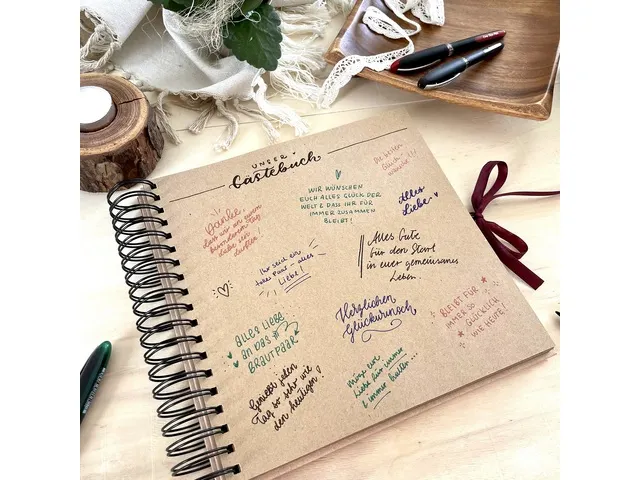 UNSER
Gästebuch
Die besten
Glück-
wünsche!!!
WIR WÜNSCHEN
EUCH ALLES GLÜCK DER
WELT & DASS IHR FÜR
IMMER ZUSAMMEN
BLEIBT!
Alles
Liebe
Danke,
dass wir an eurem
besonderen Tag
dabei sein
durften!
Ihr seid ein
tolles Paar - alles
Liebe!
Alles Gute
für den Start
in euer gemeinsames
Leben
Herzlichen
Glückwunsch
BLEIBT FÜR
IMMER SO
GLÜCKLICH
WIE HEUTE!
ALLES LIEBE
AN DAS
BRAUTPAAR
Genießt jeden
Tag so sehr wie
den heutigen!
Möge eure
Liebe für immer
& immer halten...